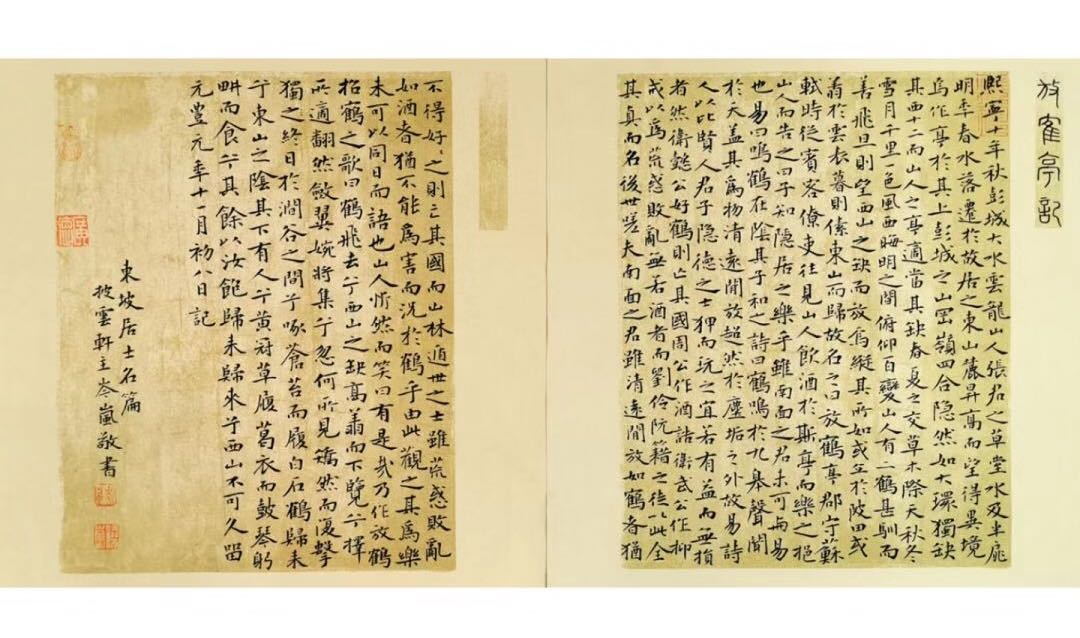 放鶴亭記
熙寧十年秋彭城大水雲龍山人張君之草堂水及半扉
明年春水落遷於故居之東山麓昇高而望得異境
焉作亭於其上彭城之山岡嶺四合隱然如大環獨缺
其西十二而山人之亭適當其缺春夏之交草木際天秋冬
雪月千里一色風雨晦明之間俯仰百變山人有二鶴甚馴而
善飛旦則望西山之缺而放焉縱其所如或立於陂田或
翥於雲表暮則傃東山而歸故名之曰放鶴亭郡守蘇
軾時從賓客僚吏往見山人飲酒於斯亭而樂之挹
山人而告之曰子知隱居之樂乎雖南面之君未可與易
也易曰鳴鶴在陰其子和之詩曰鶴鳴於九皋聲聞
於天蓋其為物清遠閒放超然於塵垢之外故易詩
人以比賢人君子隱德之士狎而玩之宜若有益而無損
者然衛懿公好鶴則亡其國周公作酒誥衛武公作抑
戒以為荒惑敗亂無若酒者而劉伶阮籍之徒以此全
其真而名後世嗟夫南面之君雖清遠閒放如鶴者猶
不得好〻之則亡其國而山林遁世之士雖荒惑敗亂
如酒者猶不能為害而況於鶴乎由此觀之其為樂
未可以同日而語也山人忻然而笑曰有是哉乃作放鶴
招鶴之歌曰鶴飛去兮西山之缺高翥而下覽兮擇
所適翻然斂翼婉將集兮忽何所見矯然而復擊
獨之終日於澗谷之間兮啄蒼苔而履白石鶴歸來
兮東山之陰其下有人兮黃冠草履葛衣而鼓琴躬
畊而食兮其餘以汝飽歸來歸來兮西山不可久留
元豐元年十一月初八日記
東坡居士名篇
披雲軒主岑嵐敬書